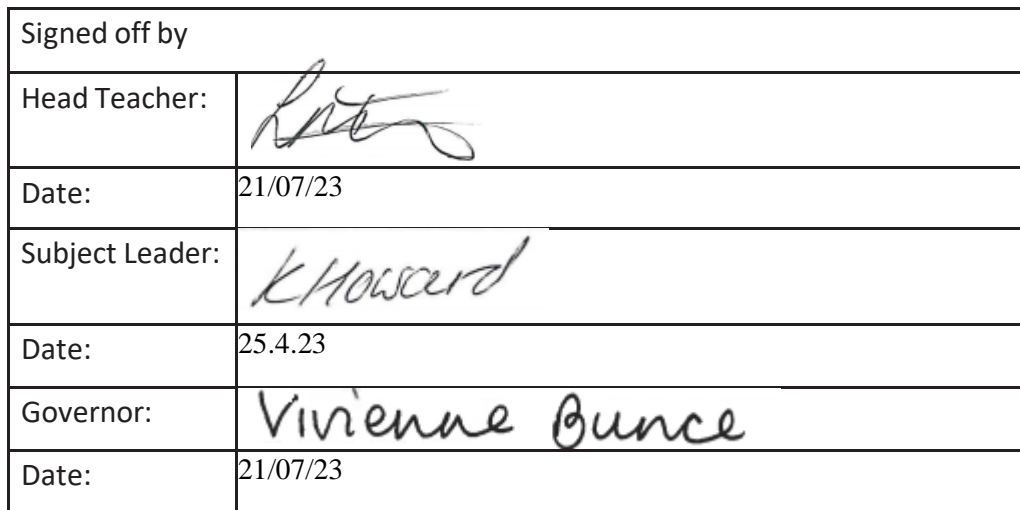 Signed off by
Head Teacher:
Date: 21/07/23
Subject Leader: K Howard
Date: 25.4.23
Governor: Vivienne Bunce
Date: 21/07/23